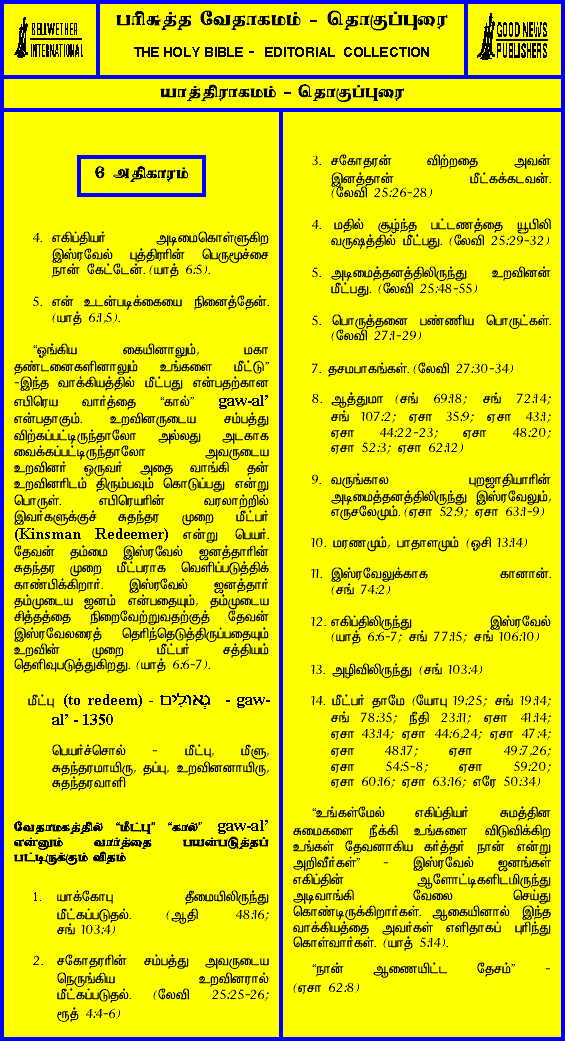 BELLWETHER
INTERNATIONAL
பரிசுத்த வேதாகமம் - தொகுப்புரை
THE HOLY BIBLE - EDITORIAL COLLECTION
GOOD NEWS
PUBLISHERS
யாத்திராகமம் - தொகுப்புரை
6 அதிகாரம்
4. எகிப்தியர் அடிமைகொள்ளுகிற
இஸ்ரவேல் புத்திரரின் பெருமூச்சை
நான் கேட்டேன். (யாத் 6:5).
5. என் உடன்படிக்கையை நினைத்தேன்.
(யாத் 6:1,5).
“ஓங்கிய கையினாலும், மகா
தண்டனைகளினாலும் உங்களை மீட்டு”
-இந்த வாக்கியத்தில் மீட்பது என்பதற்கான
எபிரெய வார்த்தை “கால்” gaw-al'
என்பதாகும். உறவினருடைய சம்பத்து
விற்கப்பட்டிருந்தாலோ அல்லது அடகாக
வைக்கப்பட்டிருந்தாலோ அவருடைய
உறவினர் ஒருவர் அதை வாங்கி தன்
உறவினரிடம் திரும்பவும் கொடுப்பது என்று
பொருள். எபிரெயரின் வரலாற்றில்
இவர்களுக்குச் சுதந்தர முறை மீட்பர்
(Kinsman Redeemer) என்று பெயர்.
தேவன் தம்மை இஸ்ரவேல் ஜனத்தாரின்
சுதந்தர முறை மீட்பராக வெளிப்படுத்திக்
காண்பிக்கிறார். இஸ்ரவேல் ஜனத்தார்
தம்முடைய ஜனம் என்பதையும், தம்முடைய
சித்தத்தை நிறைவேற்றுவதற்குத் தேவன்
இஸ்ரவேலரைத் தெரிந்தெடுத்திருப்பதையும்
உறவின் முறை மீட்பர் சத்தியம்
தெளிவுபடுத்துகிறது. (யாத் 6:6-7).
மீட்பு (to redeem) - - gaw-
al' - 1350
பெயர்ச்சொல் - மீட்பு, மீளு,
சுதந்தரமாயிரு, தப்பு, உறவினனாயிரு,
சுதந்தரவாளி
வேதாமகத்தில் “மீட்பு” “கால்” gaw-al'
என்னும் வார்த்தை பயன்படுத்தப்
பட்டிருக்கும் விதம்
1. யாக்கோபு தீமையிலிருந்து
மீட்கப்படுதல். (ஆதி 48:16;
சங் 103:4)
2. சகோதரரின் சம்பத்து அவருடைய
நெருங்கிய உறவினரால்
மீட்கப்படுதல். (லேவி 25:25-26;
ரூத் 4:4-6)
3. சகோதரன் விற்றதை அவன்
இனத்தான் மீட்கக்கடவன்.
(லேவி 25:26-28)
4. மதில் சூழ்ந்த பட்டணத்தை யூபிலி
வருஷத்தில் மீட்பது. (லேவி 25:29-32)
5. அடிமைத்தனத்திலிருந்து உறவினன்
மீட்பது. (லேவி 25:48-55)
5. பொருத்தனை பண்ணிய பொருட்கள்.
(லேவி 27:1-29)
7. தசமபாகங்கள். (லேவி 27:30-34)
8. ஆத்துமா (சங் 69:18; சங் 72:14;
சங் 107:2; ஏசா 35:9; ஏசா 43:1;
ஏசா 44:22-23; ஏசா 48:20;
ஏசா 52:3; ஏசா 62:12)
9. வருங்கால புறஜாதியாரின்
அடிமைத்தனத்திலிருந்து இஸ்ரவேலும்,
எருசலேமும். (ஏசா 52:9; ஏசா 63:1-9)
10. மரணமும், பாதாளமும் (ஓசி 13:14)
11. இஸ்ரவேலுக்காக கானான்.
(சங் 74:2)
12. எகிப்திலிருந்து இஸ்ரவேல்
(யாத் 6:6-7; சங் 77:15; சங் 106:10)
13. அழிவிலிருந்து (சங் 103:4)
14. மீட்பர் தாமே (யோபு 19:25; சங் 19:14;
சங் 78:35; நீதி 23:11; ஏசா 41:14;
ஏசா 43:14; ஏசா 44:6,24; ஏசா 47:4;
ஏசா 48:17; ஏசா 49:7,26;
ஏசா 54:5-8; ஏசா 59:20;
ஏசா 60:16; ஏசா 63:16; எரே 50:34)
“உங்கள்மேல் எகிப்தியர் சுமத்தின
சுமைகளை நீக்கி உங்களை விடுவிக்கிற
உங்கள் தேவனாகிய கர்த்தர் நான் என்று
அறிவீர்கள்” - இஸ்ரவேல் ஜனங்கள்
எகிப்தின் ஆளோட்டிகளிடமிருந்து
அடிவாங்கி வேலை செய்து
கொண்டிருக்கிறார்கள். ஆகையினால் இந்த
வாக்கியத்தை அவர்கள் எளிதாகப் புரிந்து
கொள்வார்கள். (யாத் 5:14).
“நான் ஆணையிட்ட தேசம்” -
(ஏசா 62:8)